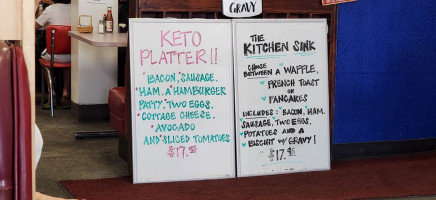 GRAVY
KETO
PLATTER!!
"BACON," SAUSAGE,
"HAM, A "HAMBURGER
PATTY," TWO EGGS,
• COTTAGE CHEESE,
• AVOCADO
AND SLICED TOMATOES
$17.95
THE
KITCHEN SINK
CHOOSE
BETWEEN A WAFFLE,
FRENCH TOAST
OR
PANCAKES
INCLUDES: "BACON, "HAM,
SAUSAGE, TWO EGGS,
POTATOES AND A
BISCUIT w/ GRAVY!
$17.95